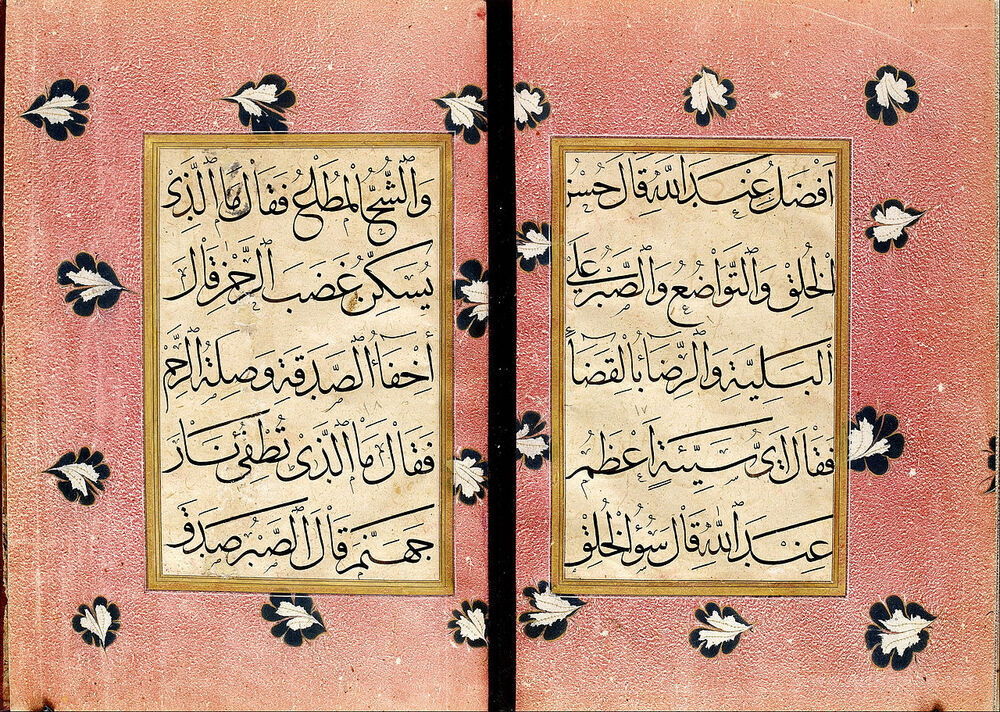 افضل عند الله قال حسن
الخلق والتواضع والصبر على
البلية والرضا بالقضاء
فقال اى سيئة اعظم
عند الله قال سؤ الخلق
والشح المطاع فقال ما الذى
يسكن غضب الرحمن قال
اخفاء الصدقة وصلة الرحم
فقال ما الذى تطفئ نار
جهنم قال الصبر صدق